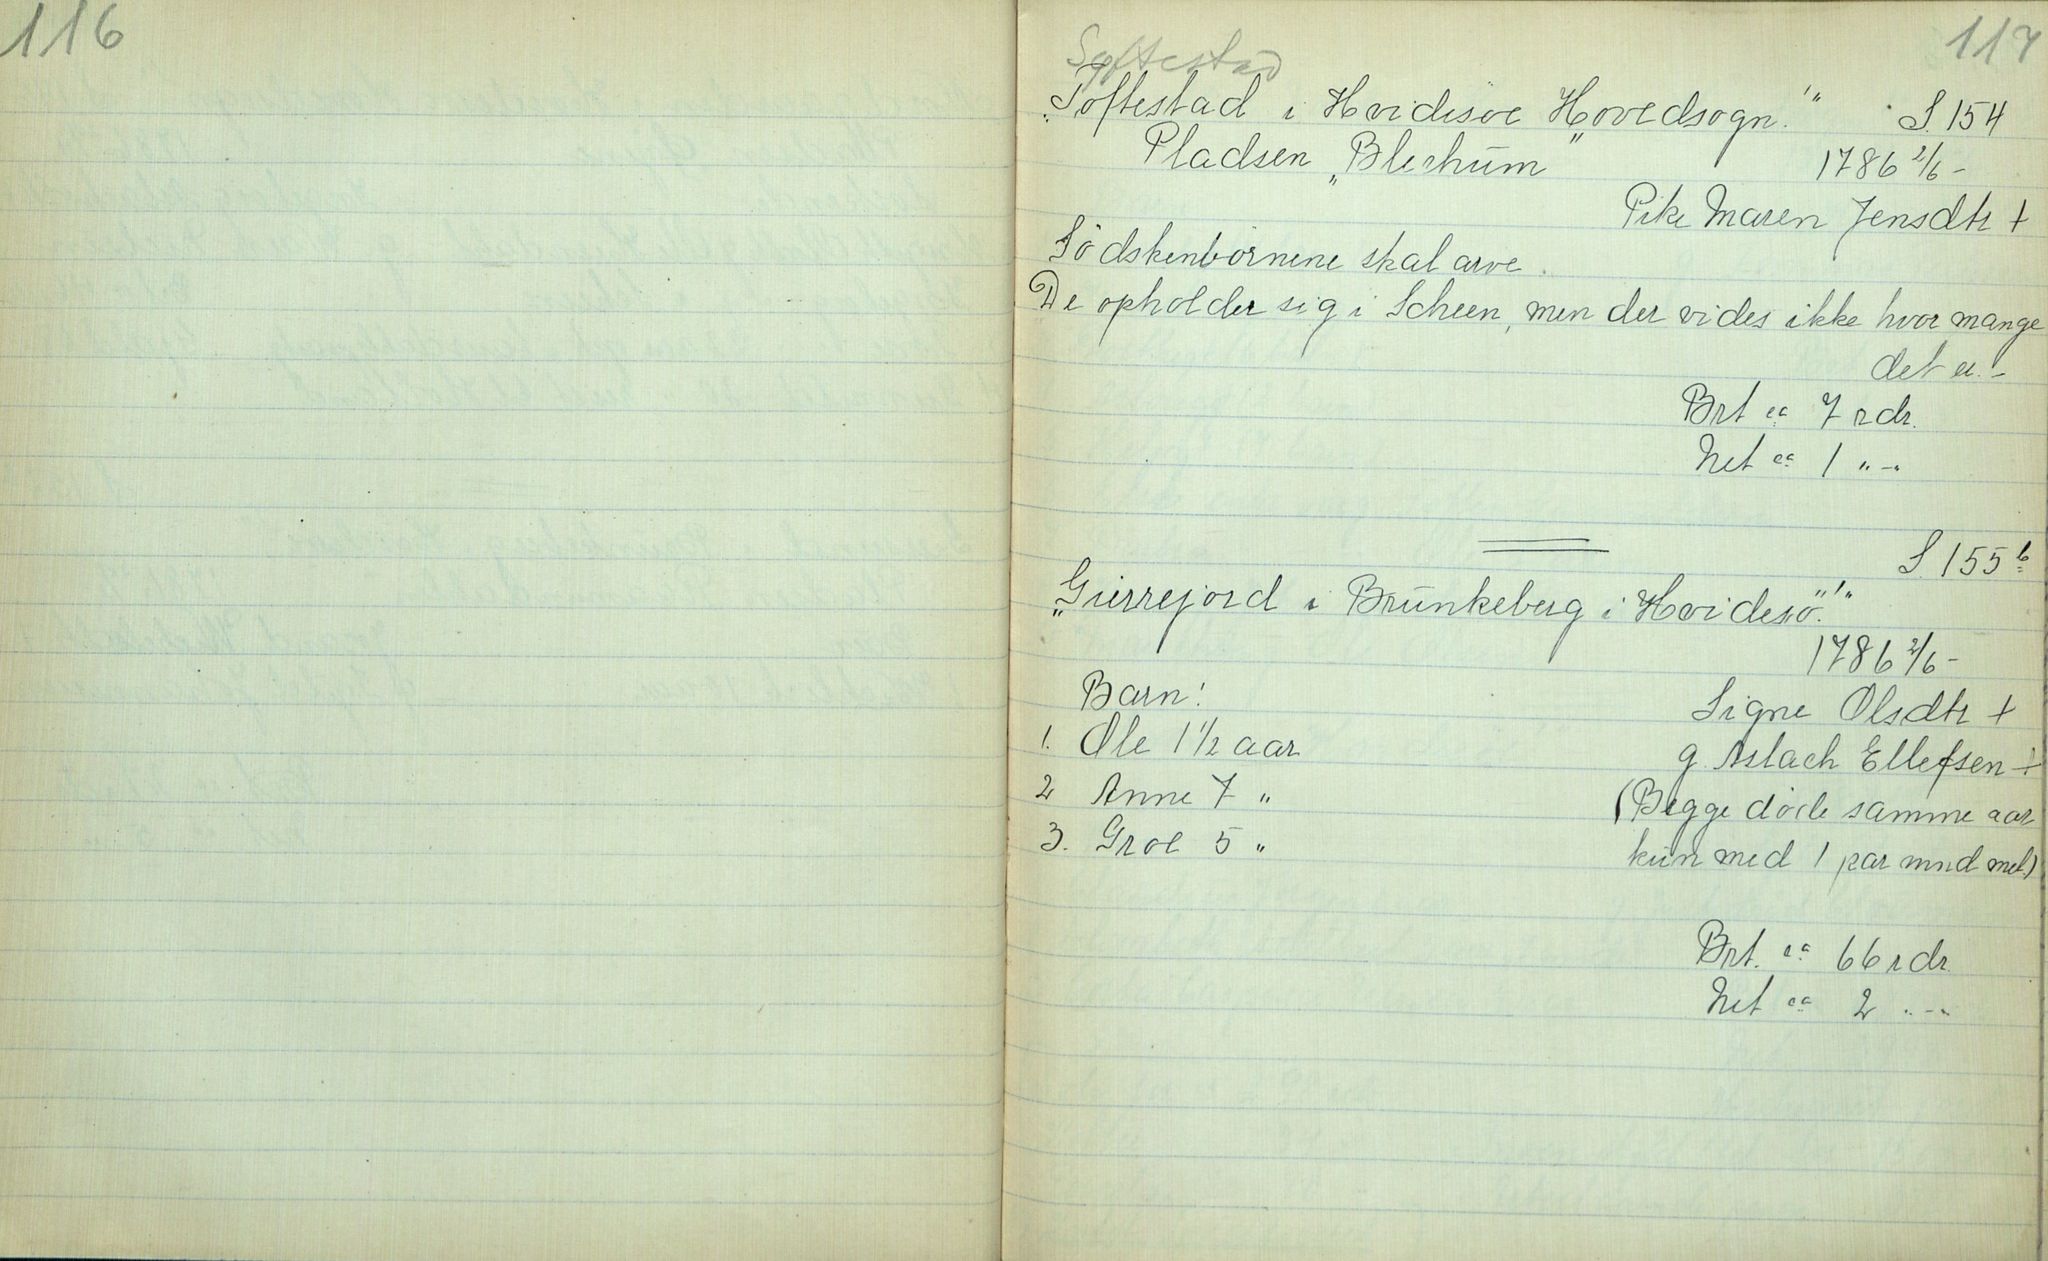 116
117
Syftestad
"Toftestad i Hvidisøe Hovedsogn!" S. 154
Pladsen "Blechum" 1786 2/6 -
Pike Maren Jensdtr +
Södskenbørnene skal arve.
De opholder sig i Scheen, men der vides ikke hvor mange
det er. -
Brt ca 7 rdr.
Net ca 1 " -"
S. 155 b
"Gierrejord i Brunkeberg i Hvidesö!"
1786 2/6 -
Barn: Signe Olsdtr +
1. Ole 1 1/2 aar g. Aslach Ellefsen +
2 Anne 7 " (Begge döde samme aar
3. Groe 5 " kun med 1 par mnd mel.)
Brt. ca 66 rdr.
Net ca 2 " -"